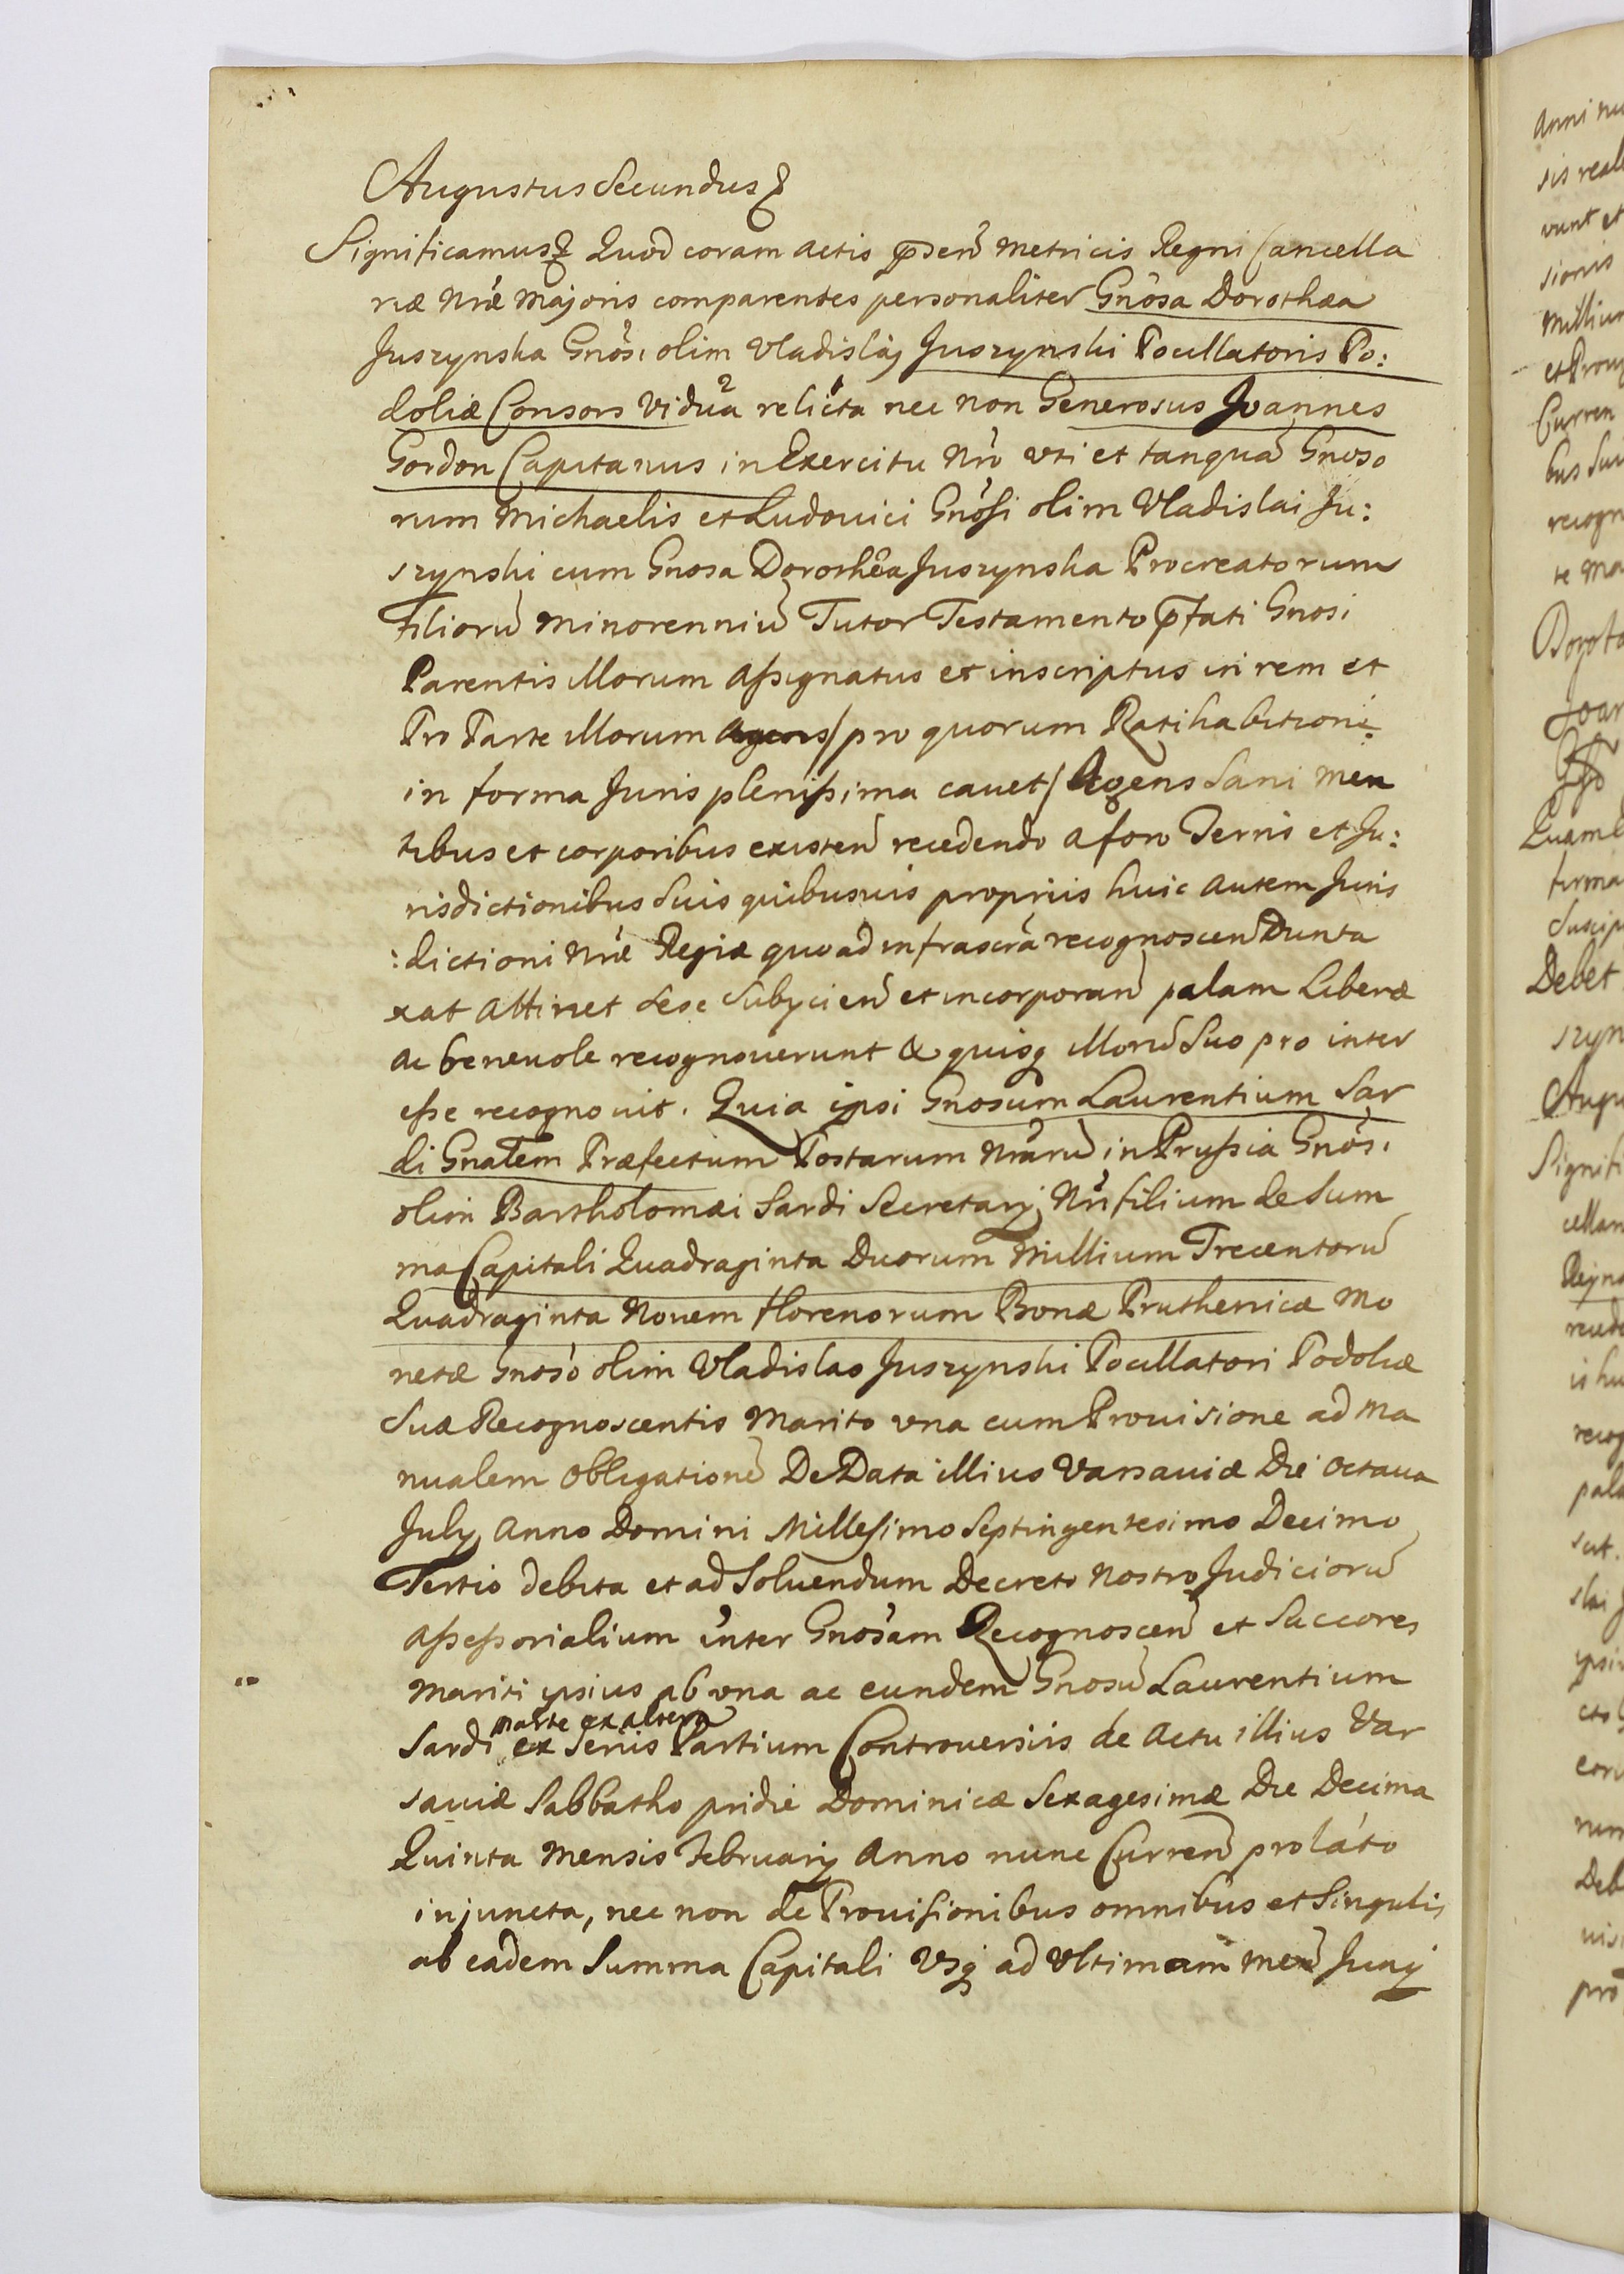 Augustus Secundus
Significamus Quod coram actis pnsen Metricis Regni Cancella
riæ Nræ Majoris comparentes personaliter Gnosa Dorothæa
Juszynska Gnosi olim Vladislaj Juszynski Pocillatoris Po:
doliæ Consors Vidua relicta nec non Generosus Joannes
Gordon Capitanus in Exercitu Nro uti et tanquã Gnoso
rum Michaelis et Ludovici Gnosi olim Vladislai Ju:
szynski cum Gnosa Dorothea Juszynska Procreatorum
Filiorũ Minorenniũ Tutor Testamento pfati Gnosi
Parentis illorum Assignatus et inscriptus in rem et
Pro Parte illorum Agens/ pro quorum Ratihabitione
in forma Juris plenissima cavet/ Agens Sani Men
tibus et corporibus existen recedendo a foro Terris et Ju:
risdictionibus Suis quibusvis proprijs huic autem Juris
:dictioni Nræ Regiæ quoad infrascra recognoscen Dunta
xat attinet sese Subjicien et incorporan palam Libere
ac benevole recognoverunt & quisq illorũ Suo pro inter
esse recognovit. Quia ipsi Gnosum Laurentium Sar
di Gnalem Præfectum Postarum Nrarũ in Prussia Gnosi
olim Bartholomæi Sardi Secretarij Nri filium de Sum
ma Capitali Quadraginta Duorum Millium Trecentorũ
Quadraginta Novem florenorum Bonæ Pruthenicæ Mo
netæ Gnoso olim Vladislao Juszynski Pocillatori Podoliæ
Suæ Recognoscentis Marito una cum Provisione ad Ma
nualem Obligationẽ De Data illius Varsaviæ Die Octava
July Anno Domini Millesimo Septingentesimo Decimo
Tertio debita et ad Solvendum Decreto Nostro Judiciorũ
Assessorialium inter Gnosam Recognoscen et Succores
Mariti ipsius ab una ac eundem Gnosũ Laurentium
parte ex altera
Sardi ex Serijs Partium Controversijs de Actu illius Var
saviæ Sabbatho pridie Dominicæ Sexagesimæ Die Decima
Quinta Mensis February Anno nunc Curren prolato
injuncta, nec non de Provisionibus omnibus et Singulis
ab eadem Summa Capitali Usq ad Ultimam Men Junij